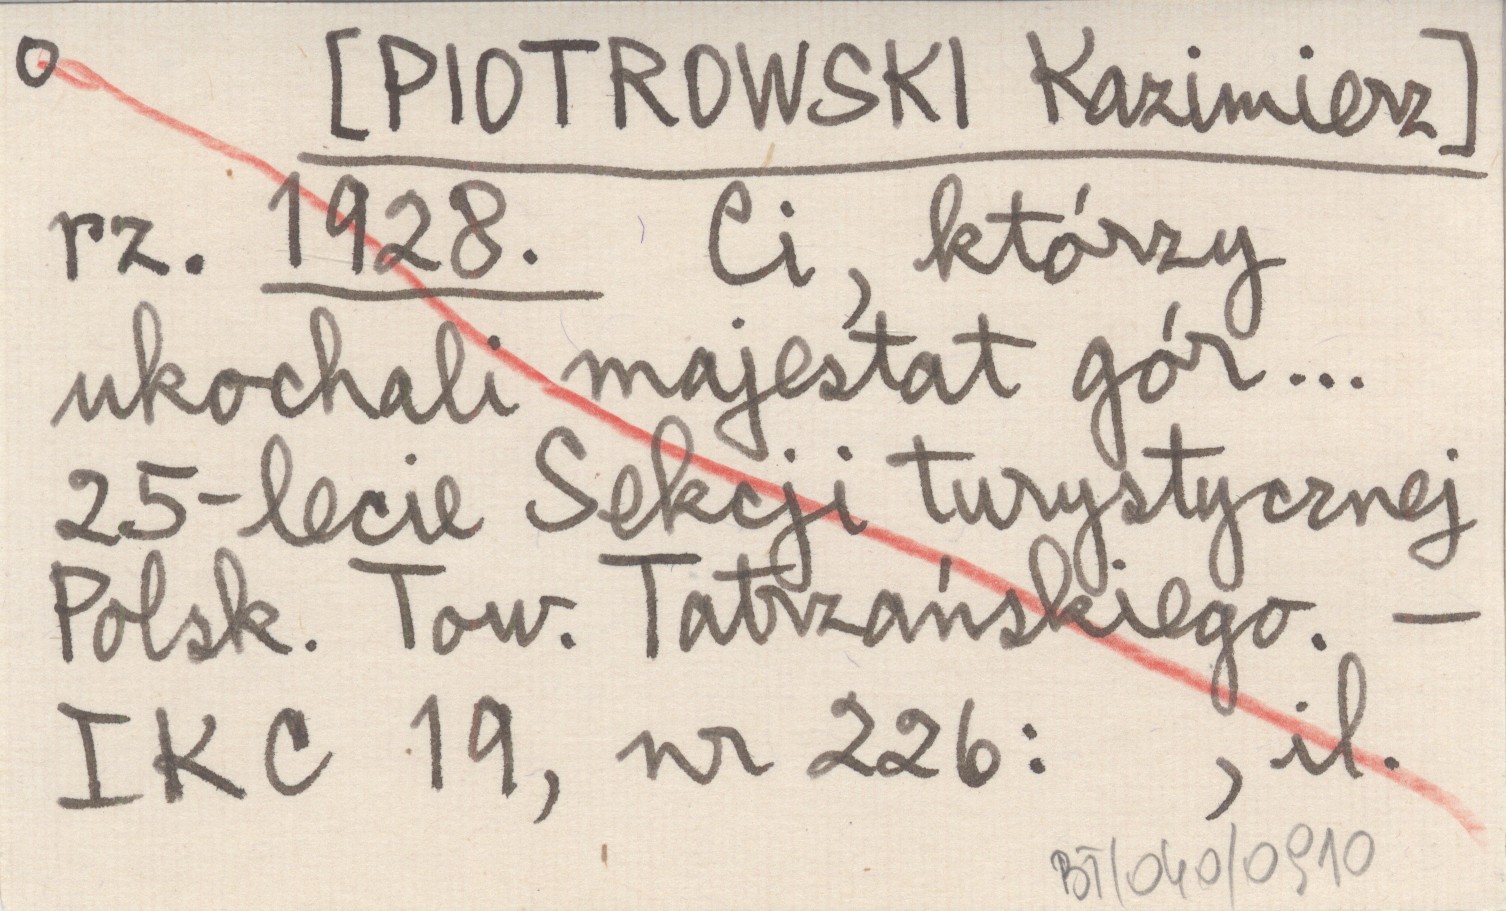 o [PIOTROWSKI Kazimierz]
rz. 1928. Ci, którzy
ukochali majestat gór...
25-lecie Sekcji turystycznej
Polsk. Tow. Tatrzańskiego. —
IKC 19, nr 226: , il.
BT/040/0910